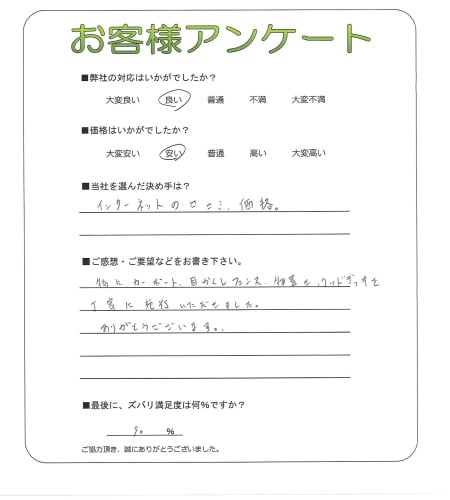 お客様アンケート
■弊社の対応はいかがでしたか？
大変良い 良い 普通 不満 大変不満
■価格はいかがでしたか？
大変安い 安い 普通 高い 大変高い
■当社を選んだ決め手は？
インターネットの口コミ、価格。
■ご感想・ご要望などをお書き下さい。
特にカーポート、目かくしフェンス、物置を、ウッドデッキを
丁寧に施行いただきました。
ありがとうございます。
■最後に、ズバリ満足度は何％ですか？
90 ％
ご協力頂き、誠にありがとうございました。